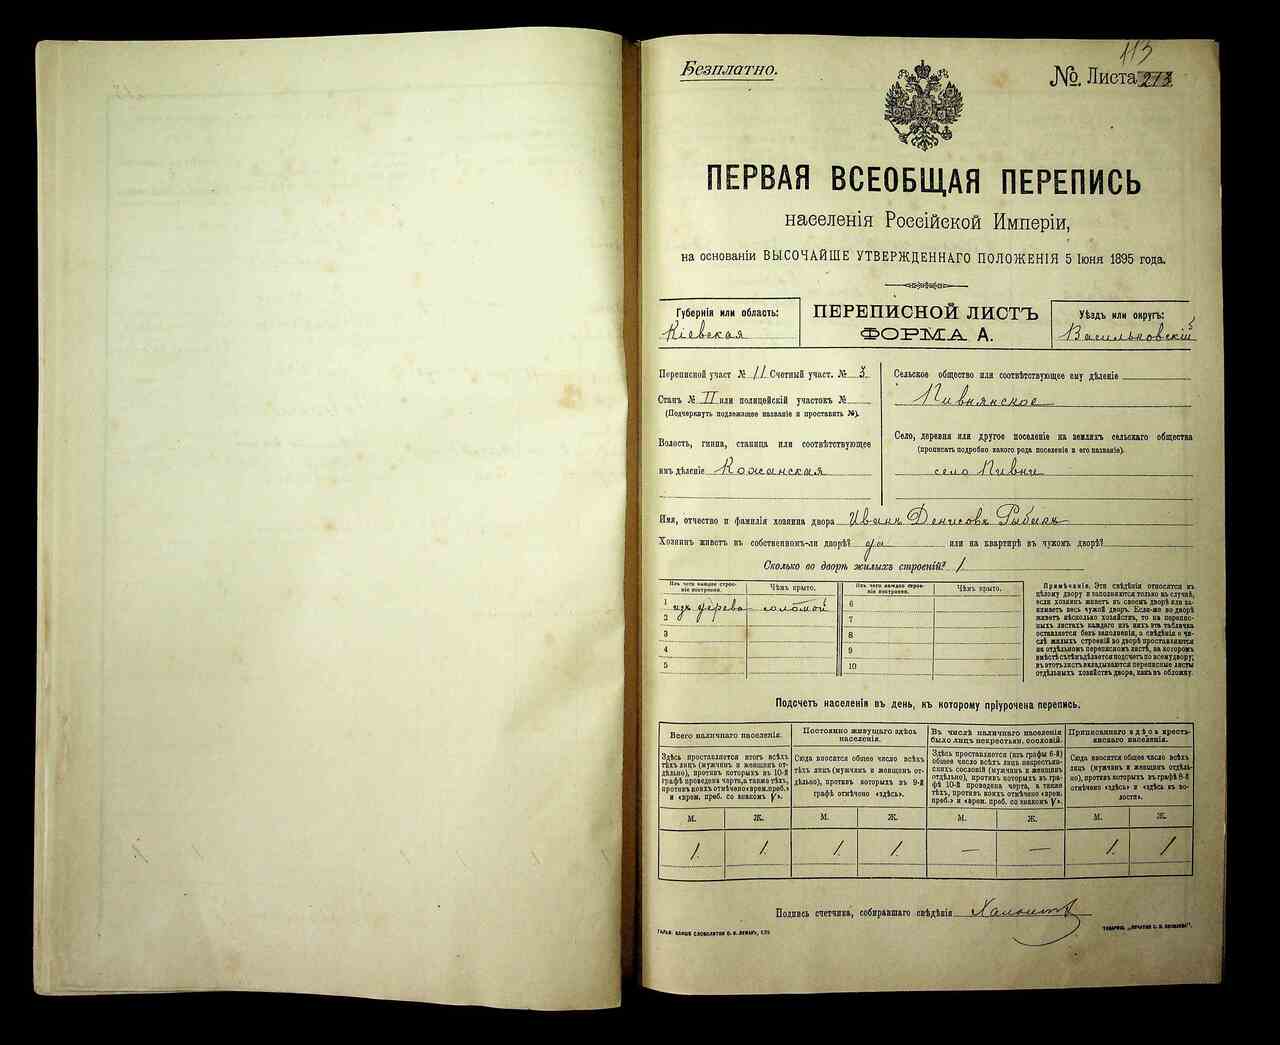 113
Безплатно.
№. Листа 213
ПЕРВАЯ ВСЕОБЩАЯ ПЕРЕПИСЬ
населенія Россійской Имперіи,
на основаніи ВЫСОЧАЙШЕ УТВЕРЖДЕННАГО ПОЛОЖЕНІЯ 5 Іюня 1895 года.
Губернія или область:
Кіевская
ПЕРЕПИСНОЙ ЛИСТЪ
ФОРМА А.
Уѣздъ или округъ:
Васильковскій
Переписной участ № 11 Счетный участ. № 3
Станъ № II или полицейскій участокъ №
(Подчеркнуть подлежащее названіе и проставить №).
Волость, гмина, станица или соотвѣтствующее
имъ дѣленіе Кожанская
Сельское общество или соотвѣтствующее ему дѣленіе
Пивнянское
Село, деревня или другое поселеніе на земляхъ сельскаго общества
(прописать подробно какого рода поселеніе и его названіе).
село Пивни
Имя, отчество и фамилія хозяина двора Иванъ Денисовъ Рыбакъ
Хозяинъ живетъ въ собственномъ-ли дворѣ? да или на квартирѣ въ чужомъ дворѣ?
Сколько во дворѣ жилыхъ строеній? 1
Изъ чего каждое строеніе построено.
Чѣмъ крыто.
1 изъ дерева соломой
2
3
4
5
Изъ чего каждое строеніе построено.
Чѣмъ крыто.
6
7
8
9
10
Примѣчаніе. Эти свѣдѣнія относятся къ
цѣлому двору и заполняются только въ случаѣ,
если хозяинъ живетъ въ своемъ дворѣ или занимаетъ
весь чужой дворъ. Если-же во дворѣ
живетъ нѣсколько хозяйствъ, то на переписныхъ
листахъ каждаго изъ нихъ эта табличка
оставляется безъ заполненія, а свѣдѣнія о числѣ
жилыхъ строеній во дворѣ проставляются
на отдѣльномъ переписномъ листѣ, на которомъ
вмѣстѣ съ тѣмъ дѣлается подсчетъ по всему двору;
въ этотъ листъ вкладываются переписные листы
отдѣльныхъ хозяйствъ двора, какъ въ обложку.
Подсчетъ населенія въ день, къ которому пріурочена перепись.
Всего наличнаго населенія.
Здѣсь проставляется итогъ всѣхъ
тѣхъ лицъ (мужчинъ и женщинъ отдѣльно),
противъ которыхъ въ 10-й
графѣ проведена черта, а также тѣхъ,
противъ коихъ отмѣчено «врем. преб.»
и «врем. преб. со знакомъ V».
Постоянно живущаго здѣсь
населенія.
Сюда вносится общее число всѣхъ
тѣхъ лицъ (мужчинъ и женщинъ отдѣльно),
противъ которыхъ въ 9-й
графѣ отмѣчено «здѣсь».
Въ числѣ наличнаго населенія
было лицъ некрестьян. сословій.
Здѣсь проставляется (изъ графы 6-й)
общее число всѣхъ лицъ некрестьянскихъ
сословій (мужчинъ и женщинъ
отдѣльно), противъ которыхъ въ графѣ
10-й проведена черта, а также
тѣхъ, противъ коихъ отмѣчено «врем.
преб.» и «врем. преб. со знакомъ V».
Приписаннаго здѣсь крестьянскаго
населенія.
Сюда вносится общее число всѣхъ
лицъ (мужчинъ и женщинъ отдѣльно),
противъ которыхъ въ графѣ 8-й
отмѣчено «здѣсь» и «здѣсь въ волости».
М. Ж. М. Ж. М. Ж. М. Ж.
1. 1. 1. 1. — — 1. 1
Подпись счетчика, собиравшаго свѣдѣнія